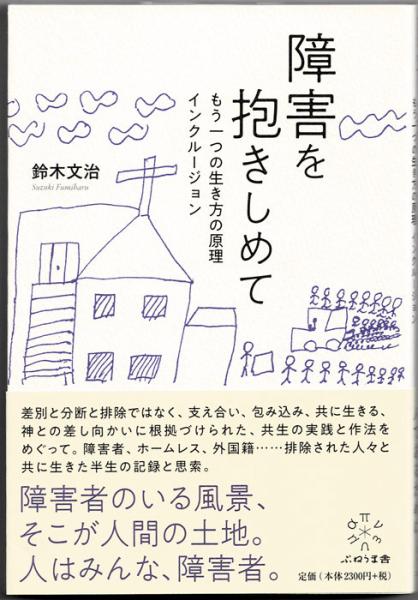 障害を
抱きしめて
もう一つの生き方の原理
インクルージョン
鈴木文治
Suzuki Fumiharu
差別と分断と排除ではなく、支え合い、包み込み、共に生きる、
神との差し向かいに根拠づけられた、共生の実践と作法を
めぐって。障害者、ホームレス、外国籍……排除された人々と
共に生きた半生の記録と思索。
障害者のいる風景、
そこが人間の土地。
人はみんな、障害者。
ぷねうま舎
定価（本体2300円+税）